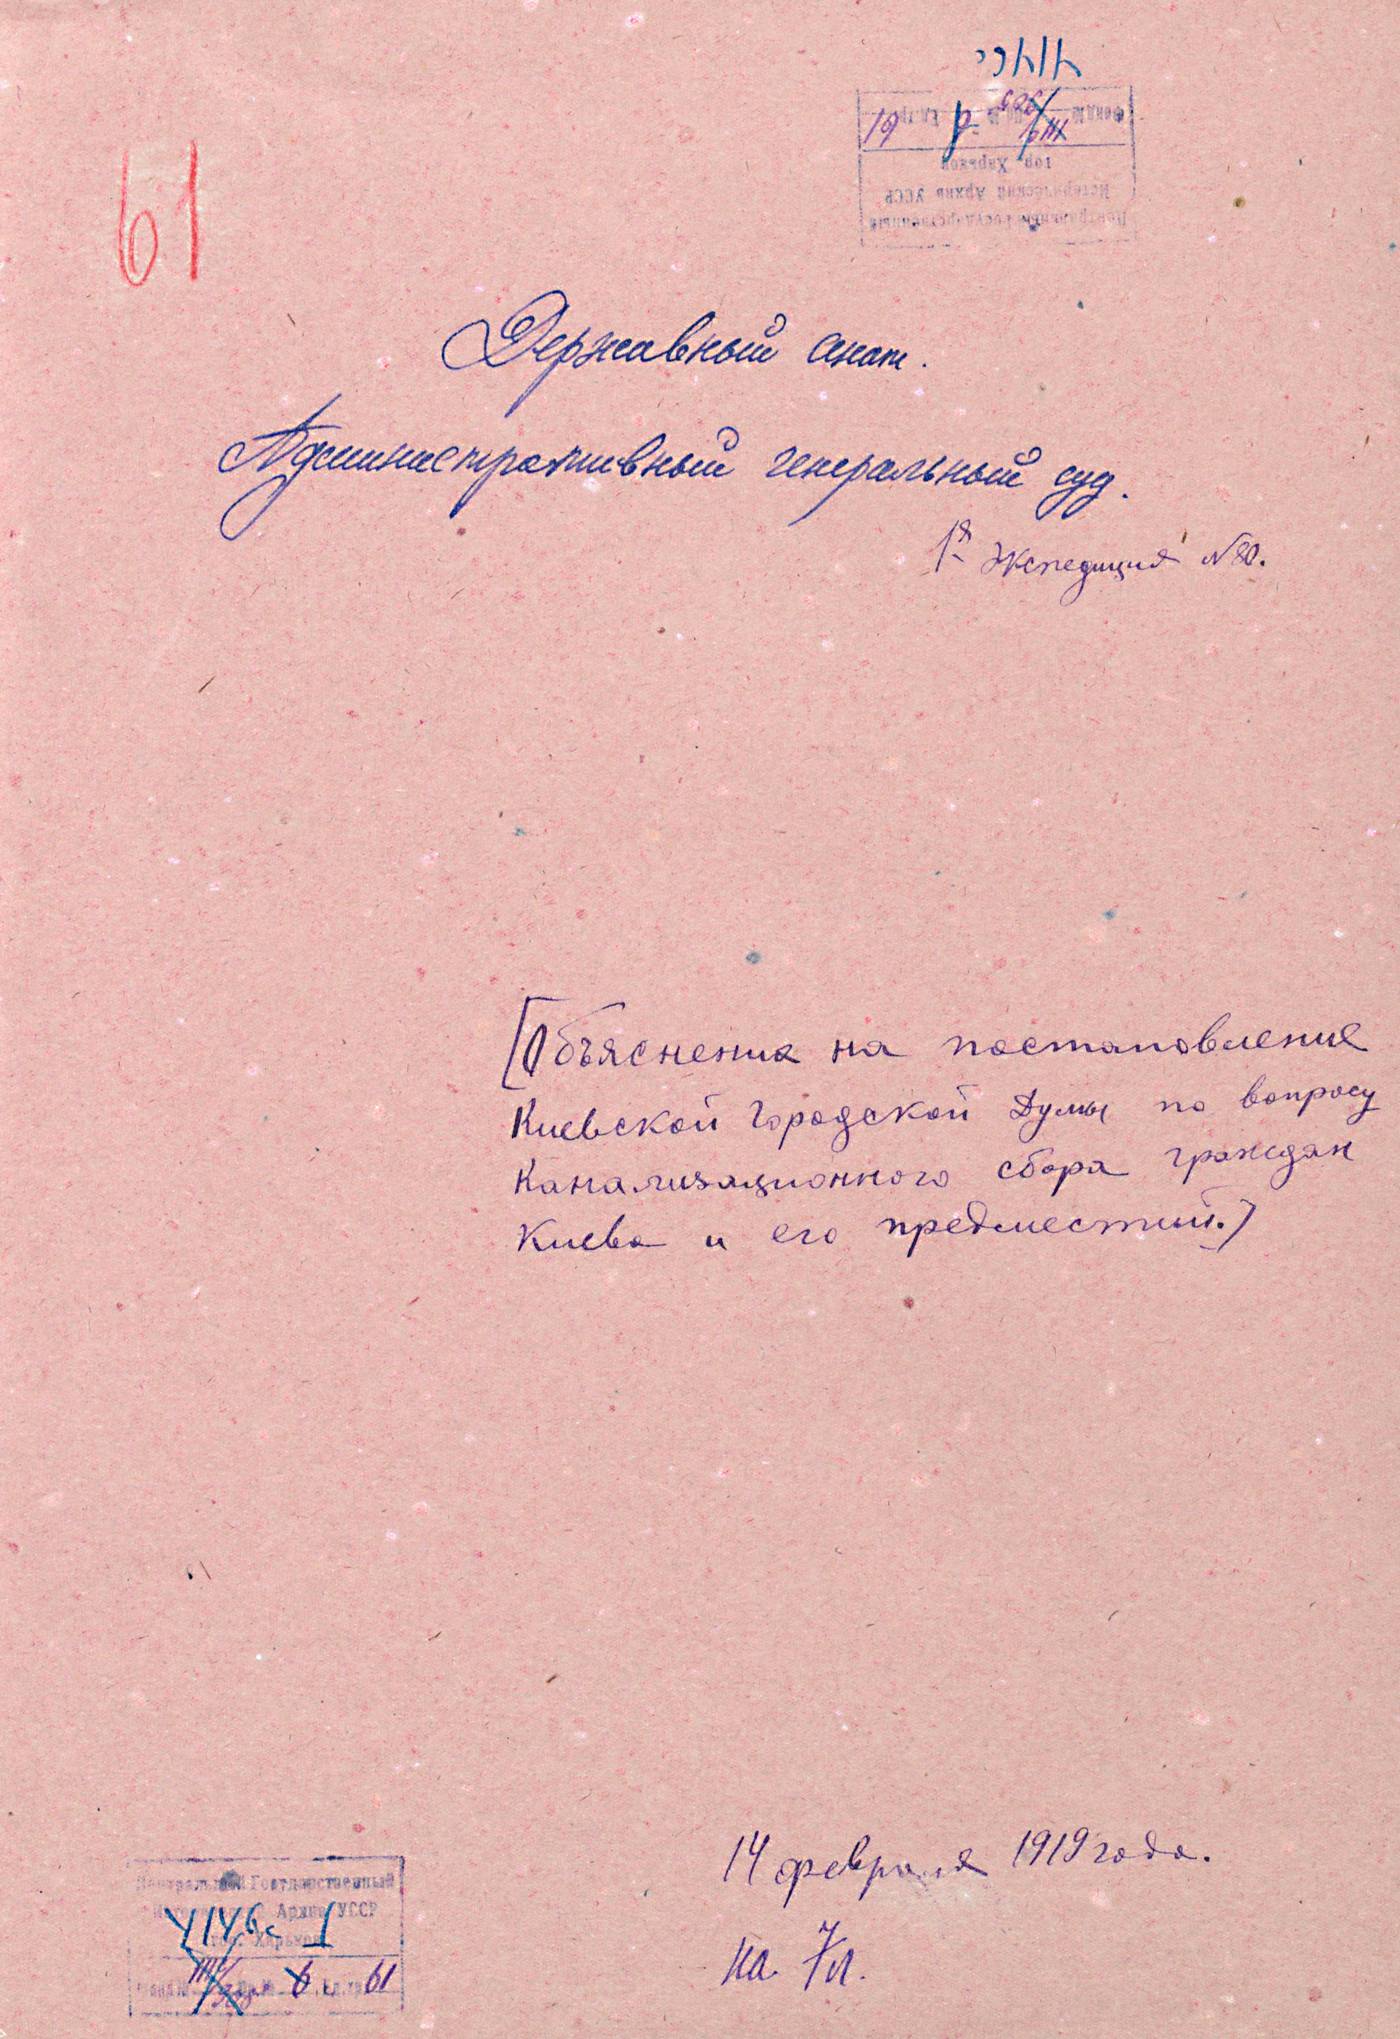 61
Центральный Государственный
Исторический Архив УССР
гор. Харьков
Державный сенат.
Административный генеральный суд.
1я экспедиция № 80.
[Объяснения на постановления
Киевской Городской Думы по вопросу
канализационного сбора граждан
Киева и его предместий.]
14 февраля 1919 года.
на 7 л.
Центральный Государственный
Исторический Архив УССР
гор. Харьков
61